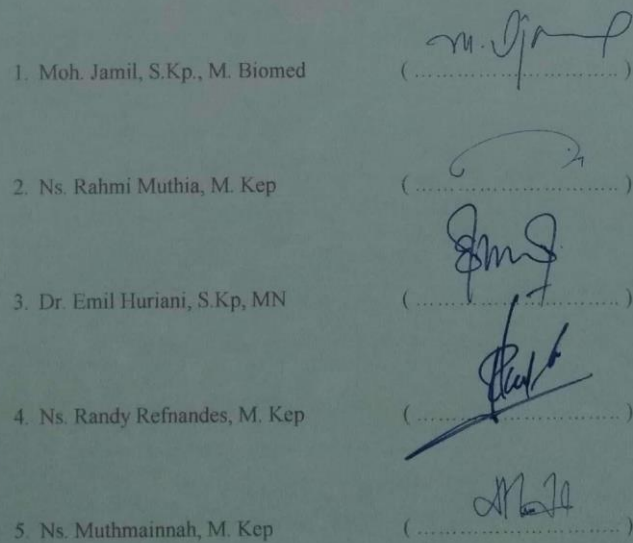 1. Moh. Jamil, S.Kp., M. Biomed (..............................)
2. Ns. Rahmi Muthia, M. Kep (..............................)
3. Dr. Emil Huriani, S.Kp, MN (..............................)
4. Ns. Randy Refnandes, M. Kep (..............................)
5. Ns. Muthmainnah, M. Kep (..............................)